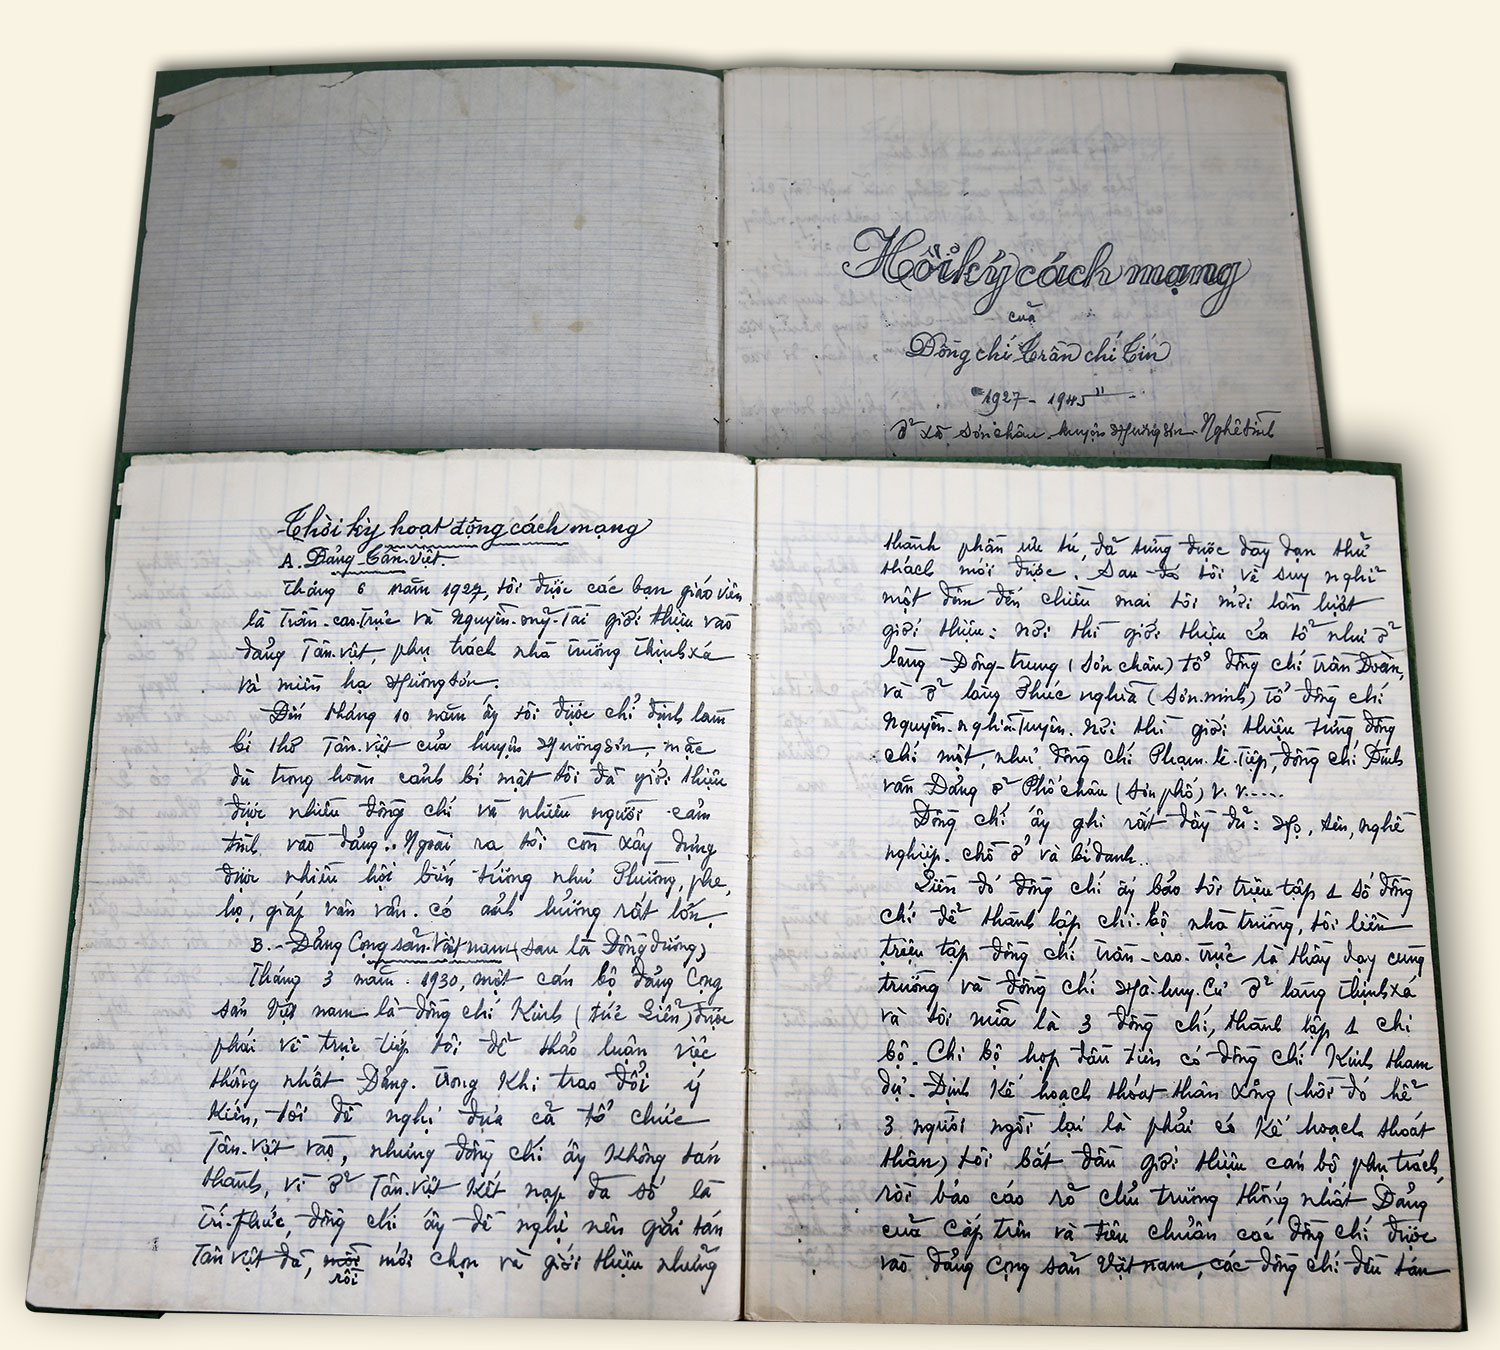 Hồi ký cách mạng
của
Đồng chí Trần chí Tín
"1927 - 1945"
Ở xã Sơn châu - huyện Hương Sơn - Nghệ tĩnh
Thời kỳ hoạt động cách mạng
A. Đảng Tân-Việt.
Tháng 6 năm 1927, tôi được các bạn giáo viên
là Trần-cao-Trực và Nguyễn-mỹ-Tài giới thiệu vào
đảng Tân-việt, phụ trách nhà trường Thịnh xá
và miền hạ Hương sơn.
Đến tháng 10 năm ấy tôi được chỉ định làm
bí thơ Tân-việt của huyện Hương Sơn, mặc
dù trong hoàn cảnh bí mật tôi đã giới thiệu
được nhiều đồng chí và nhiều người cảm
tình vào đảng. Ngoài ra tôi còn xây dựng
được nhiều hội biến tướng như Phường, phe,
họ, giáp vân vân. có ảnh hưởng rất lớn.
B. - Đảng Cọng sản-Việt nam (sau là Đông dương)
Tháng 3 năm 1930, một cán bộ đảng Cọng
sản Việt nam là đồng chí Kinh (tức Liên) được
phái về trực tiếp tôi để thảo luận việc
thống nhất Đảng. Trong khi trao đổi ý
kiến, tôi đề nghị đưa cả tổ chức
Tân-Việt vào, nhưng đồng chí ấy không tán
thành, vì ở Tân-việt kết nạp đa số là
trí-thức, đồng chí ấy đề nghị nên giải tán
Tân việt đã, rồi mới chọn và giới thiệu những
thành phần ưu tú, đã từng được dày dạn thử
thách mới được. Sau-đó tôi về suy nghĩ
một đêm đến chiều mai tôi mới lần lượt
giới thiệu: nơi thì giới thiệu cả tổ như ở
làng Đông-trung (Sơn châu) tổ đồng chí Trần Đoàn,
và ở làng Phúc nghĩa (Sơn-ninh) tổ đồng chí
Nguyễn-nghĩa-Tuyên. nơi thì giới thiệu từng đồng
chí một, như đồng chí Phạm-lê-Tiệp, đồng chí Đinh
văn Đảng ở Phố châu (Sơn phố) v. v.....
Đồng chí ấy ghi rất đầy đủ: Họ, tên, nghề
nghiệp. chỗ ở và bí danh..
Liền đó đồng chí ấy bảo tôi triệu tập 1 số đồng
chí để thành lập chi-bộ nhà trường, tôi liền
triệu tập đồng chí Trần-cao-Trực là thầy dạy cùng
trường và đồng chí Hà-huy-Cừ ở làng Thịnh xá
và tôi nữa là 3 đồng chí, thành lập 1 chi
bộ. Chi bộ họp đầu tiên có đồng chí Kinh tham
dự. Định kế hoạch thoát-thân xong (hồi đó hễ
3 người ngồi lại là phải có kế hoạch thoát
thân) tôi bắt đầu giới thiệu cán bộ phụ trách,
rồi báo cáo rõ chủ trương thống nhất Đảng
của cấp trên và tiêu chuẩn các đồng chí được
vào đảng Cọng sản Việt nam, các đồng chí đều tán